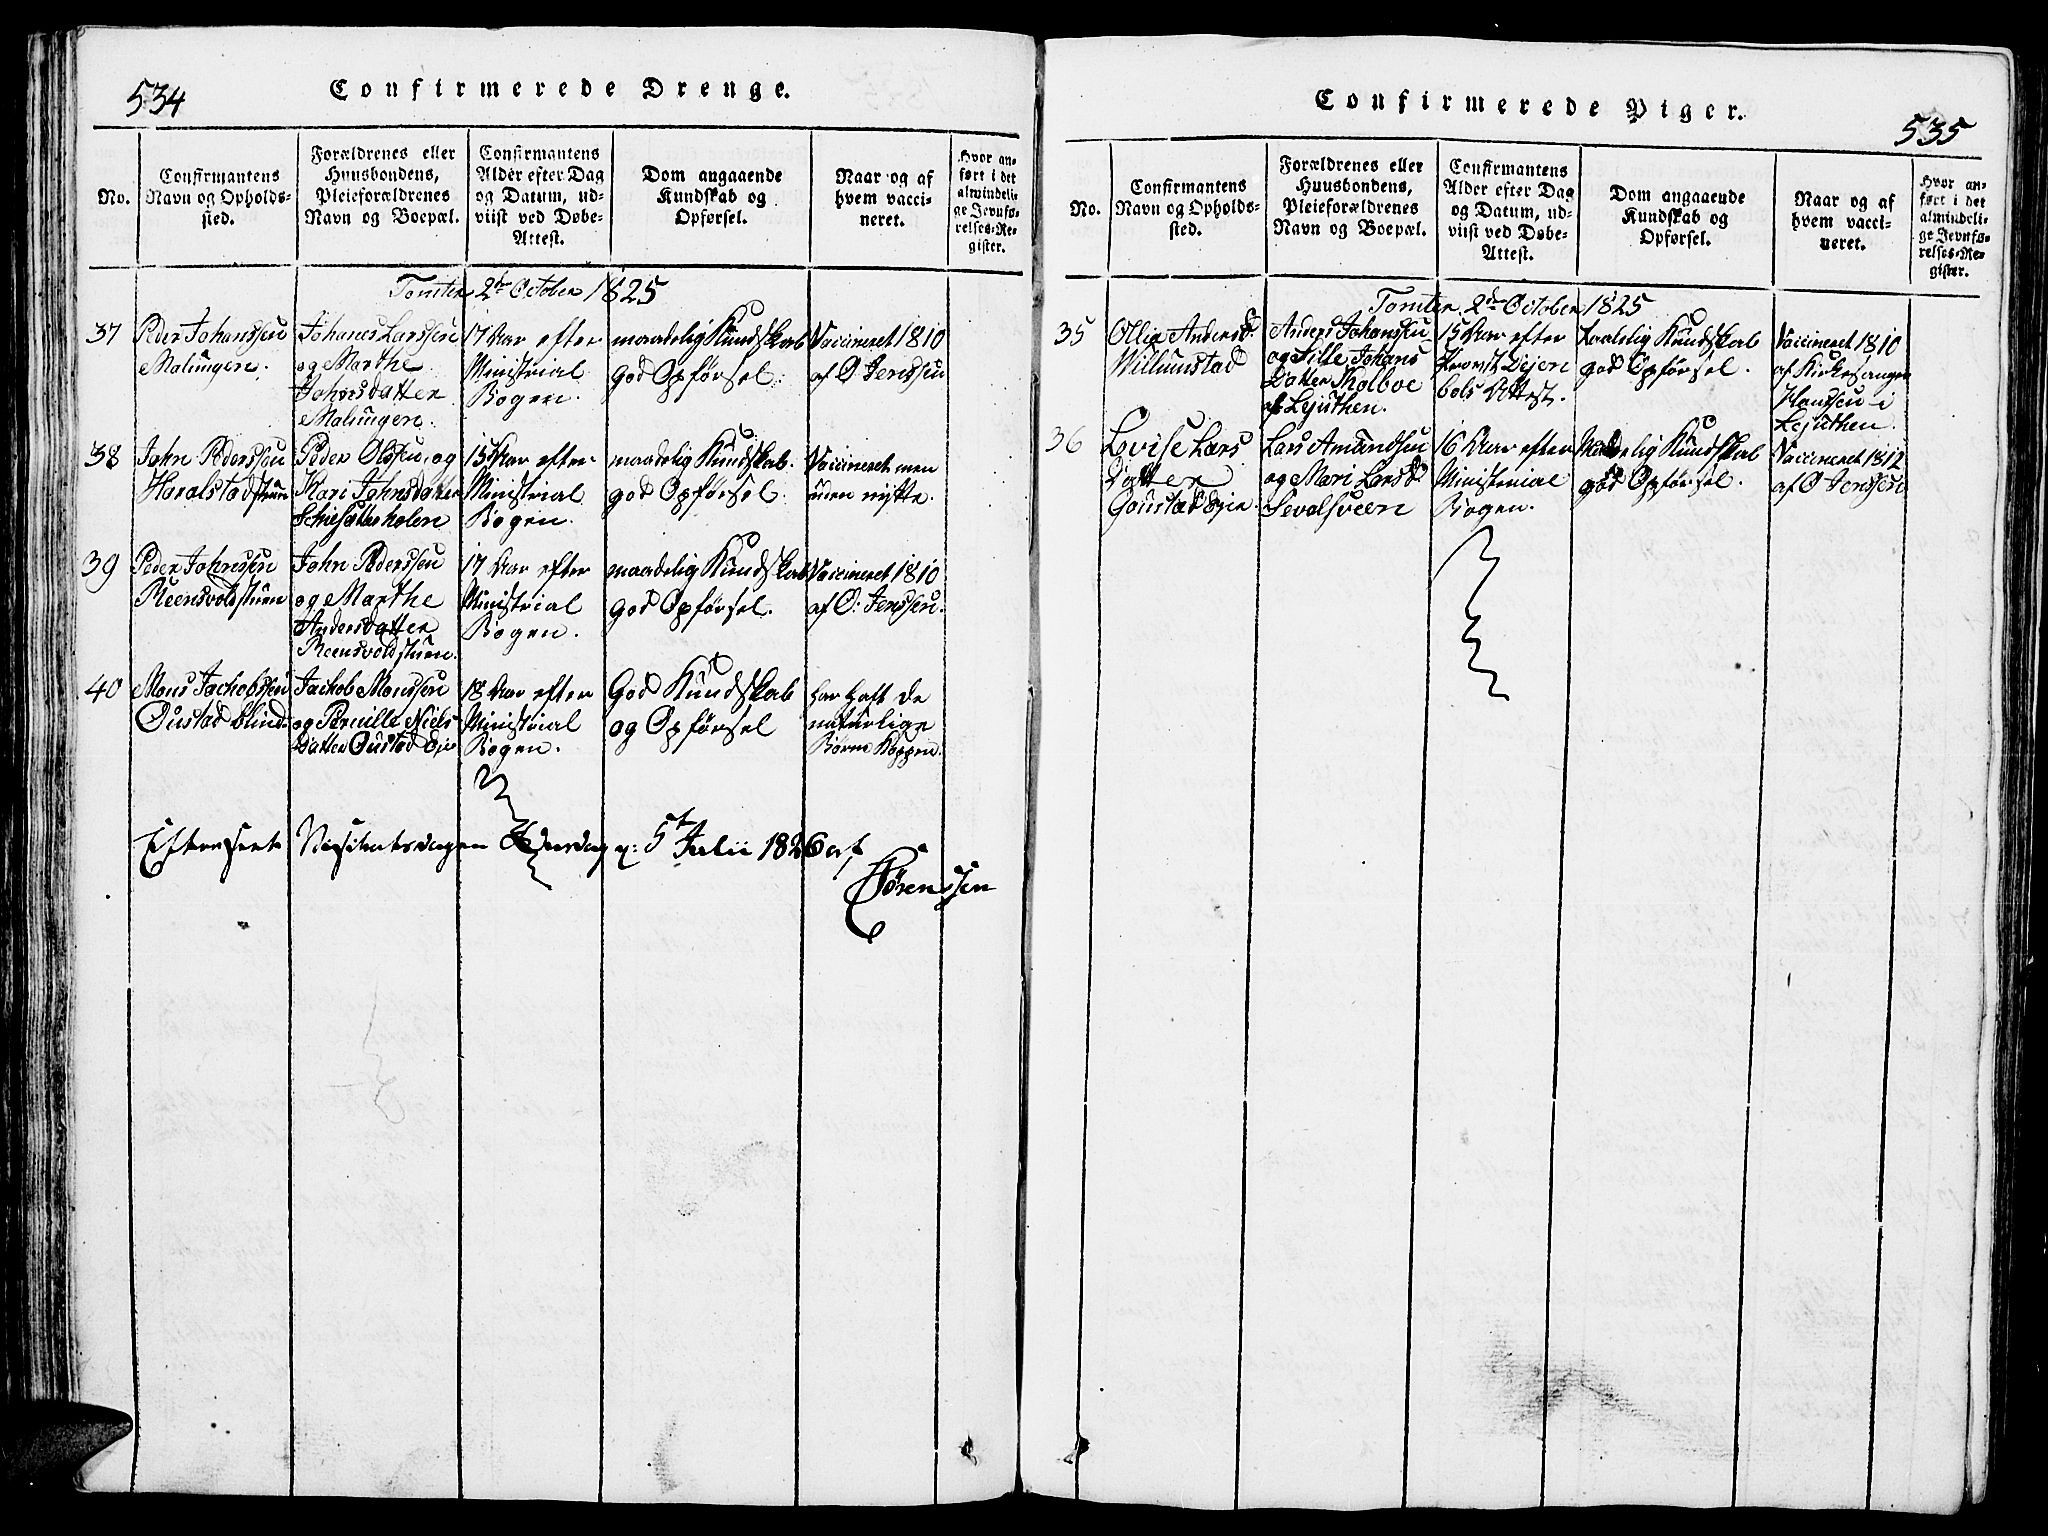 534
Confirmerede Drenge.
No.
Confirmantens
Navn og Opholds-
sted.
Forældrenes eller
Huusbondens,
Pleieforældrenes
Navn og Boepæl.
Confirmantens
Alder efter Dag
og Datum, ud-
viist ved Døbe-
Attest.
Dom angaaende
Kundskab og
Opførsel.
Naar og af
hvem vacci-
neret.
Hvor an-
ført i det
almindeli-
ge Jevnfø-
relses-Re-
gister.
Tomter 2den October 1825
37
Peder Johanssen
Malungen.
Johanes Larssen
og Marthe
Johnsdatter
Malungen.
17 Aar efter
Ministrial
Bogen.
maadelig Kundskab
god Opførsel.
Vaccineret 1810
af O: Jenssen
38
John Pederssen
Haralstadstuen
Peder Olssen og
Kari Johnsdatter
15 Aar efter
Ministrial
Bogen.
maadelig Kundskab.
god Opførsel.
Vaccineret men
uden nytte.
39
Peder Johnssen
Reensvoldstuen
John Pederssen
og Marthe
Andersdatter
Reensvoldstuen.
17 Aar efter
Ministrial
Bogen.
maadelig Kundskab
god Opførsel.
Vaccineret 1810
af O: Jenssen.
40
Mons Jachobssen
Oustad blind
Jachob Monssen
og Pernille Niels
Datter Oustad Eje
18 Aar efter
Ministrial
Bogen.
God Kundskab
og Opførsel
har haft de
naturlige
Børne Kopper.
Efterseet Visitatsdagen Onsdag d: 5te Julii 1826 af
Sørenssen
535
Confirmerede Piger.
No.
Confirmantens
Navn og Opholds-
sted.
Forældrenes eller
Huusbondens,
Pleieforældrenes
Navn og Boepæl.
Confirmantens
Alder efter Dag
og Datum, ud-
viist ved Døbe-
Attest.
Dom angaaende
Kundskab og
Opførsel.
Naar og af
hvem vacci-
neret.
Hvor an-
ført i det
almindeli-
ge Jevnfø-
relses-Re-
gister.
Tomter 2den October 1825
35
Ollia Andersd.
Willumstad
Anders Johanssen
og Sille Johans
Datter Kolboe
af Lejuthen.
15 Aar efter
Provst Dejen
bols Attest.
Maadelig Kundskab
god Opførsel.
Vaccineret 1810
af Kirkesanger
Hanssen i
Lejuthen.
36
Lovise Lars
Datter
Gaustad Ejer.
Lars Amundsen
og Mari Larsd
Sevalsveen
16 Aar efter
Ministerial
Bogen.
Maadelig Kundskab
god Opførsel.
Vaccineret 1812
af O Jenssen